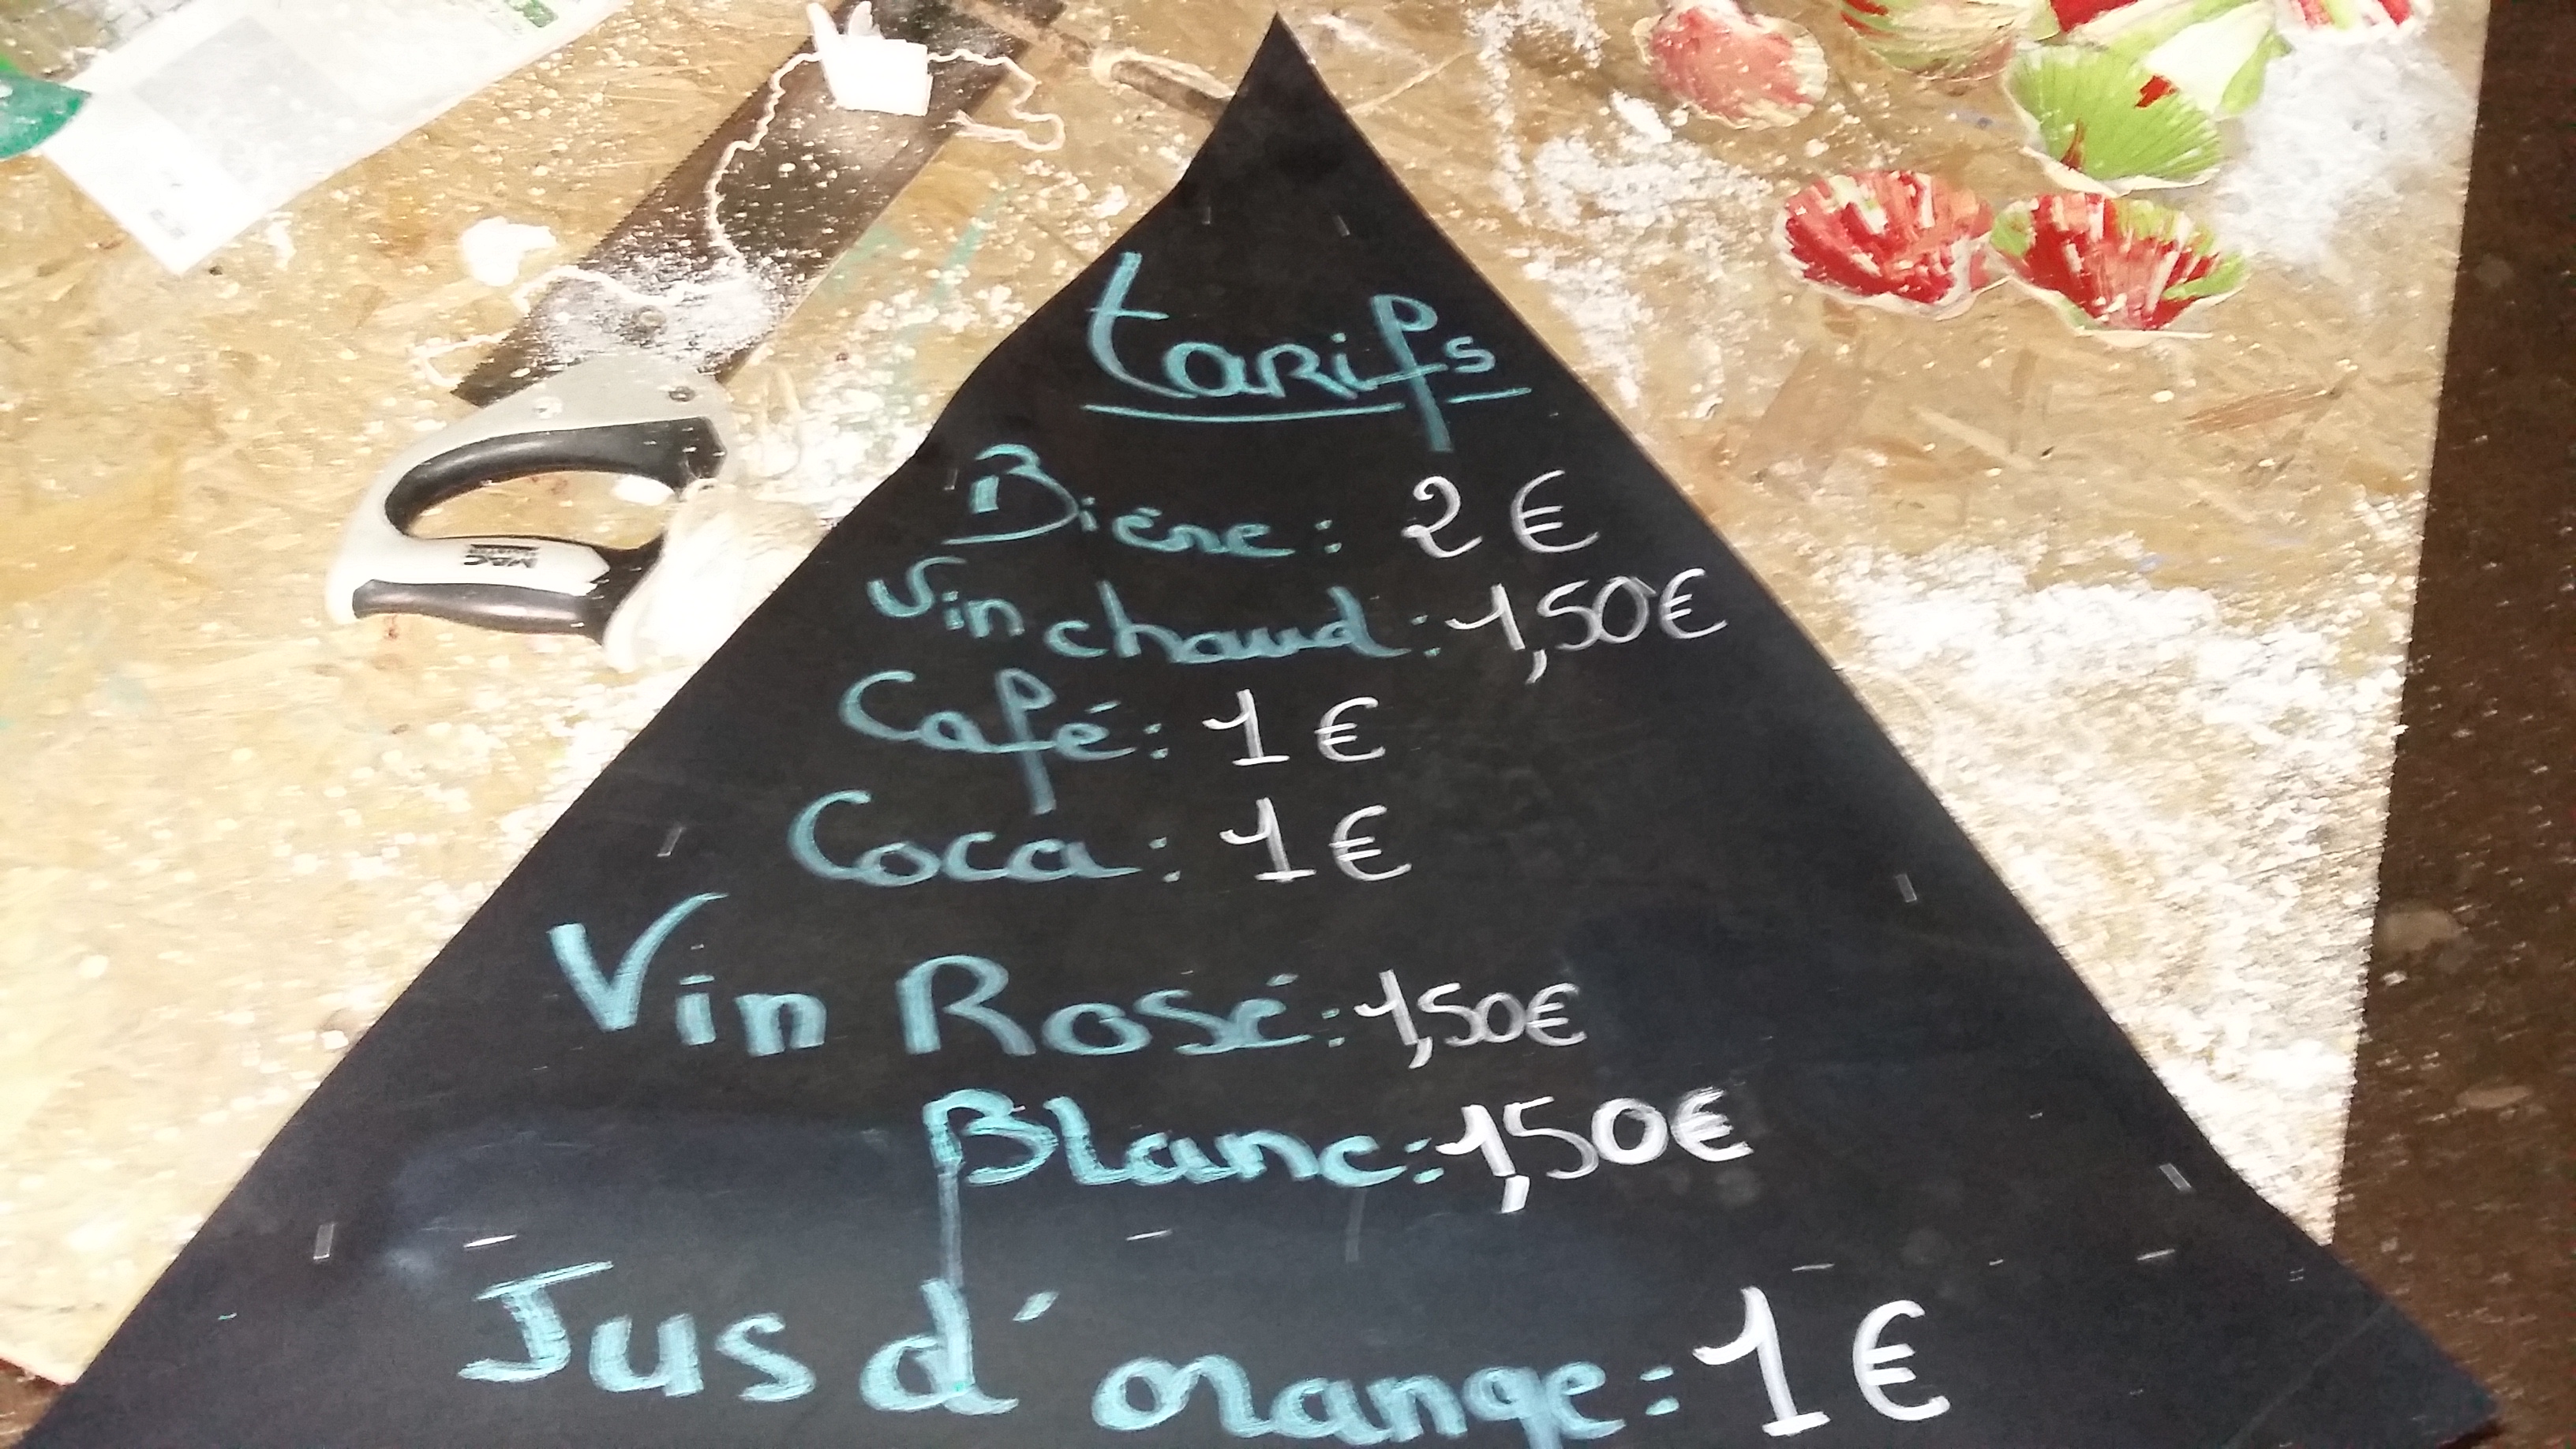 tarifs
Bière : 2 €
Vin chaud : 1,50 €
Café : 1 €
Coca : 1 €
Vin Rosé : 1,50 €
Blanc : 1,50 €
Jus d'orange : 1 €
MAC